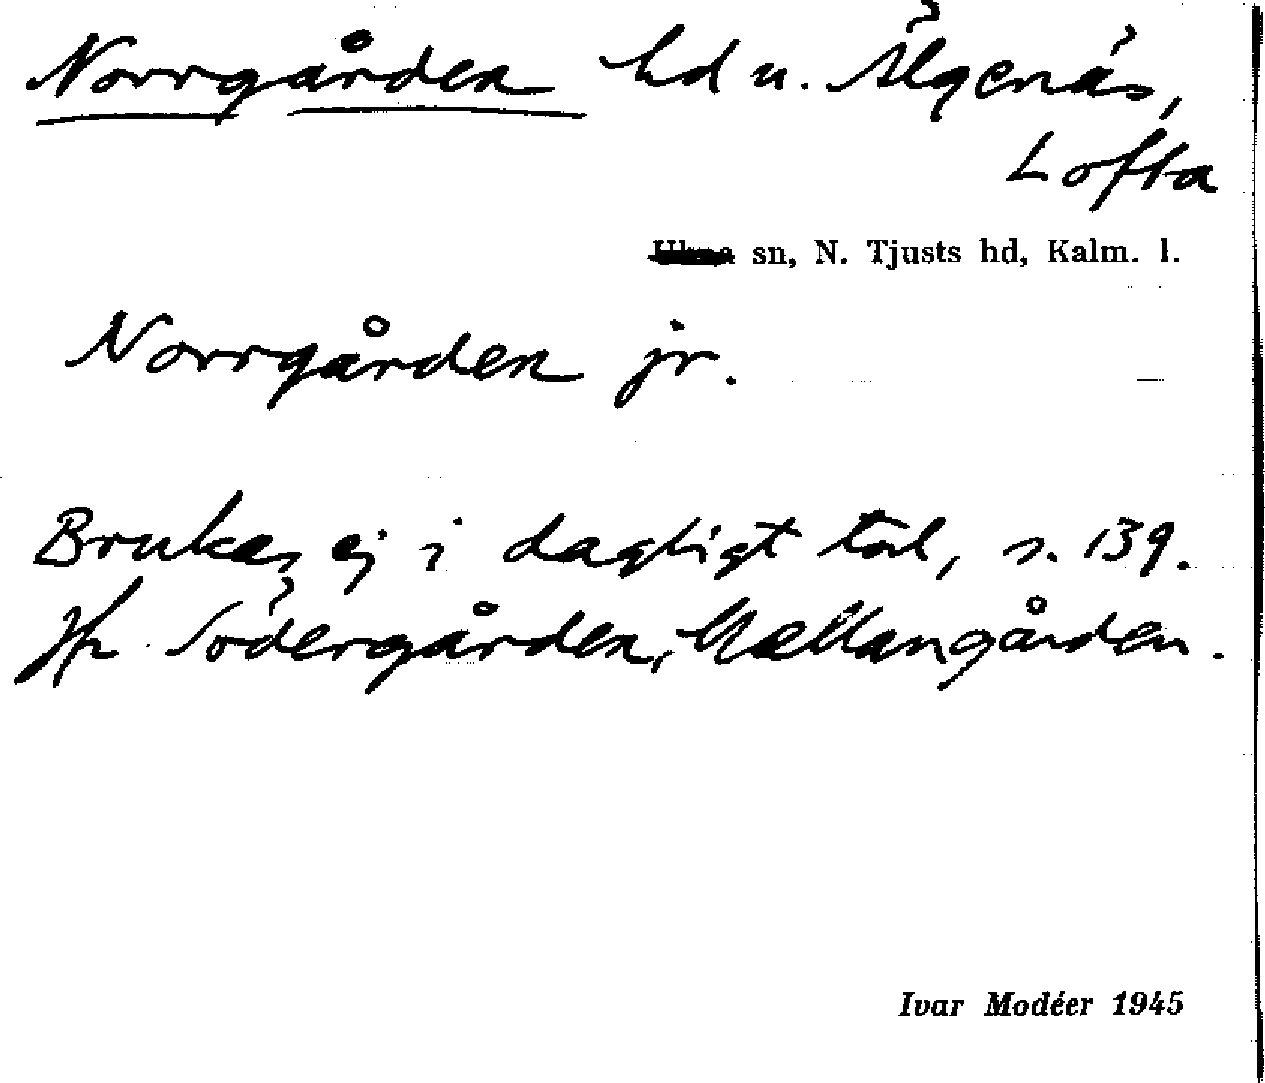 Norrgården hd u. Älgenäs,
Lofta
sn, N. Tjusts hd, Kalm. l.
Norrgården jr.
Brukas ej i dagligt tal, s. 139.
Jfr Södergården, Mellangården.
Ivar Modéer 1945